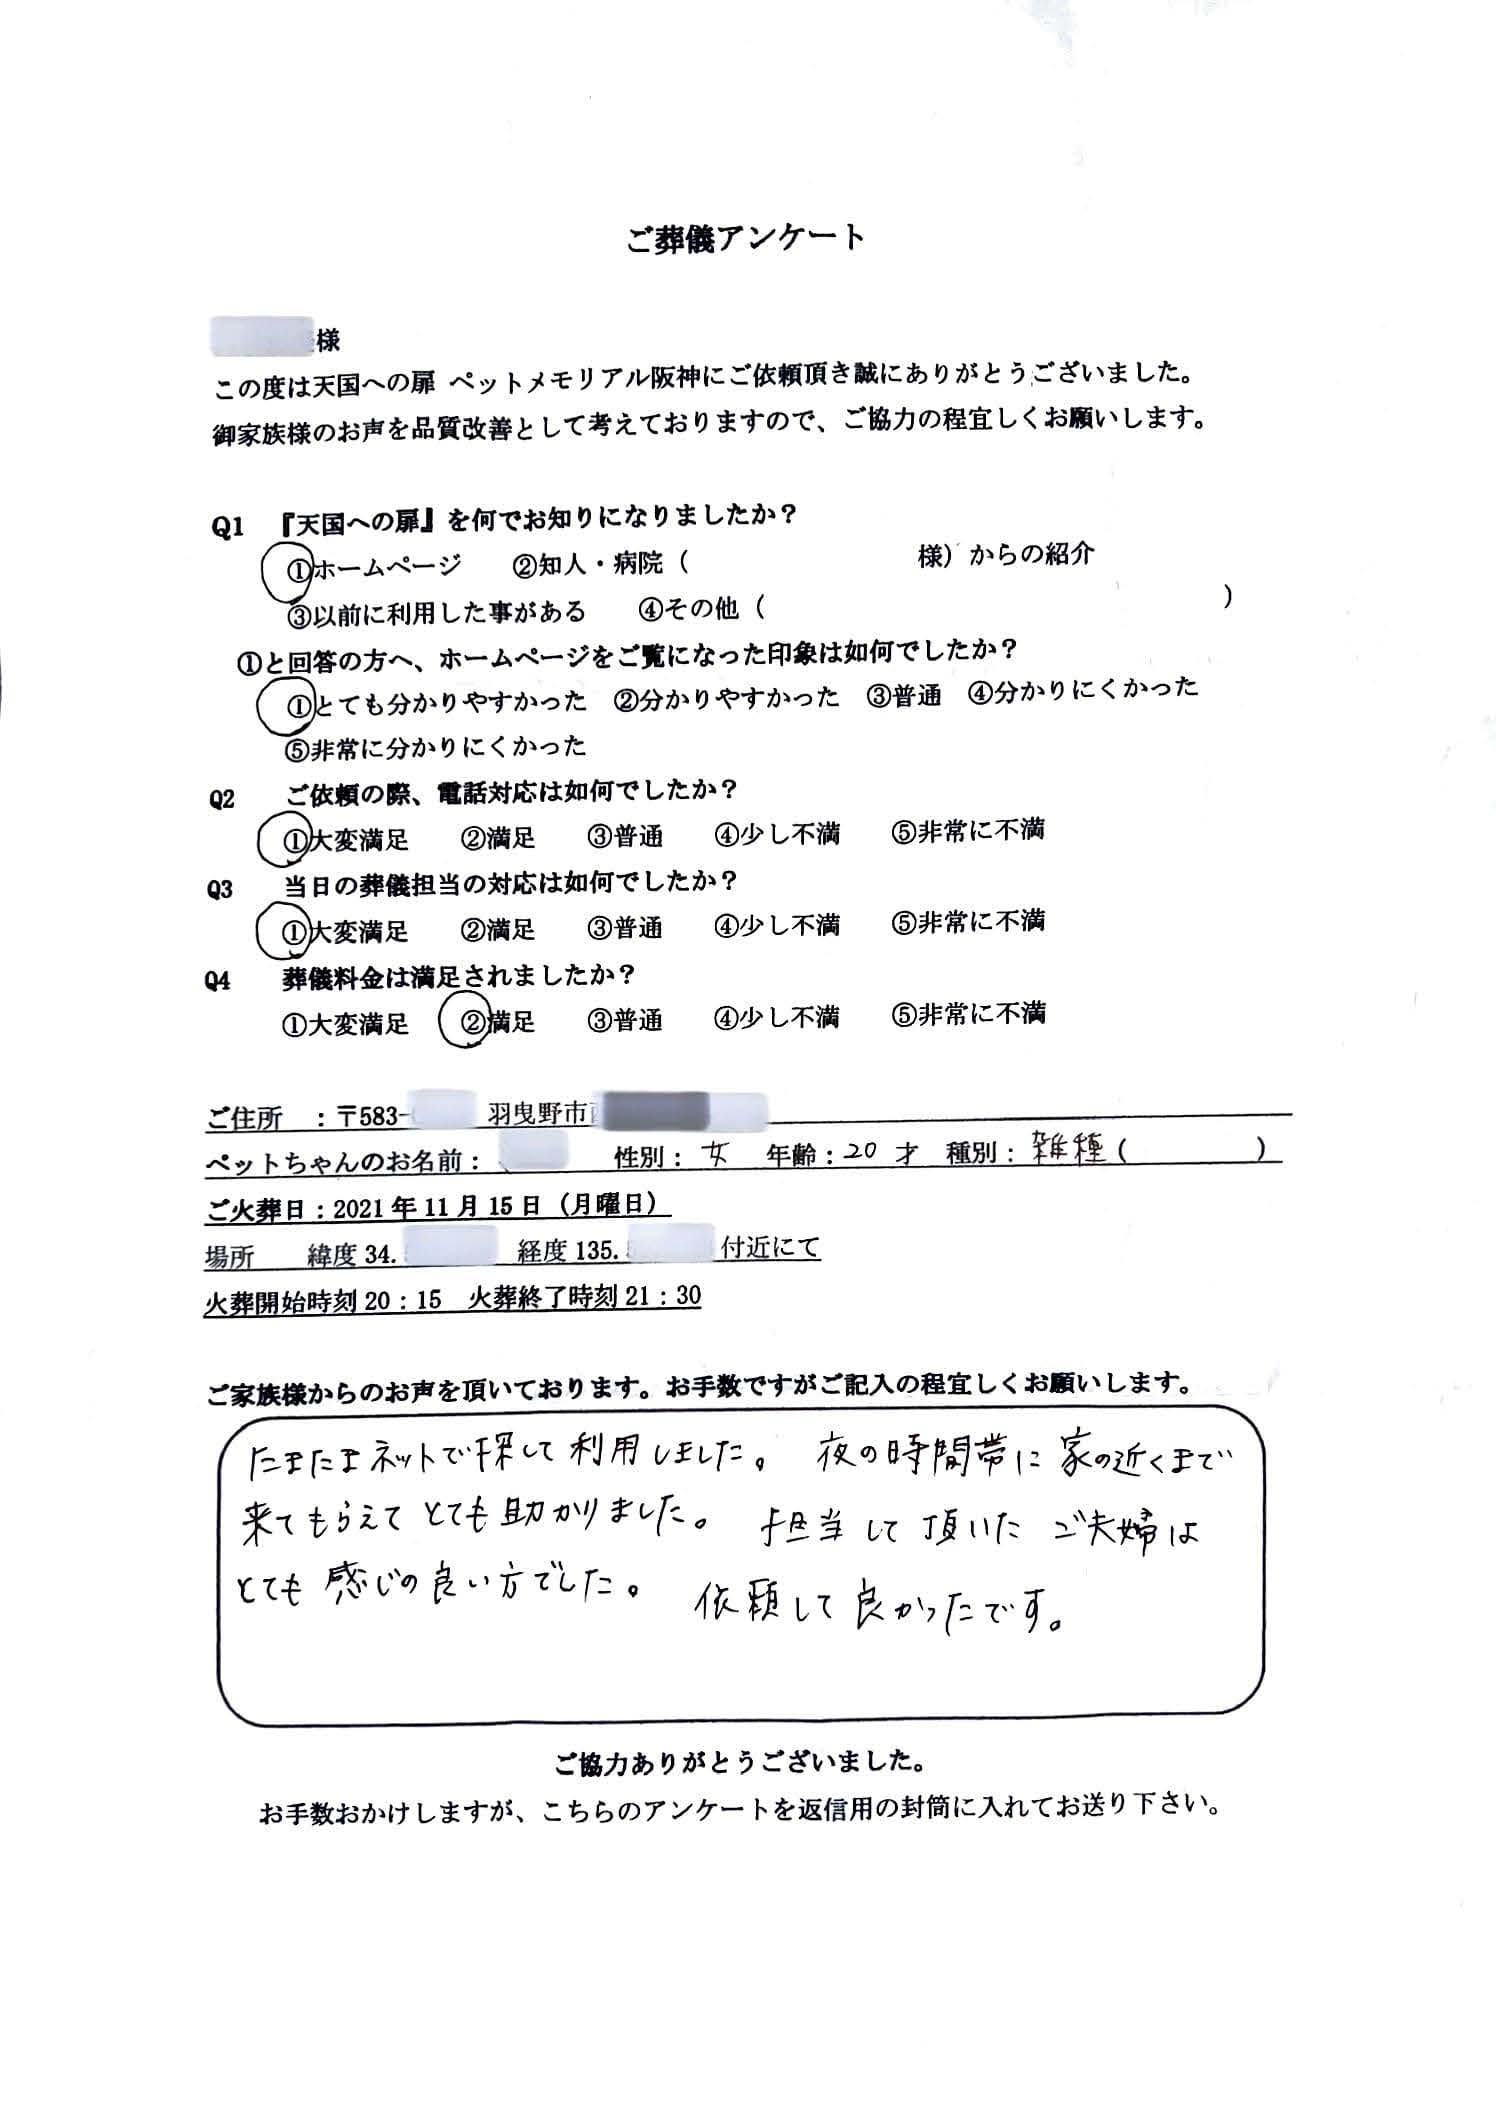 ご葬儀アンケート
様
この度は天国への扉 ペットメモリアル阪神にご依頼頂き誠にありがとうございました。
御家族様のお声を品質改善として考えておりますので、ご協力の程宜しくお願いします。
Q1 『天国への扉』を何でお知りになりましたか？
①ホームページ ②知人・病院（ 様）からの紹介
③以前に利用した事がある ④その他（ ）
①と回答の方へ、ホームページをご覧になった印象は如何でしたか？
①とても分かりやすかった ②分かりやすかった ③普通 ④分かりにくかった
⑤非常に分かりにくかった
Q2 ご依頼の際、電話対応は如何でしたか？
①大変満足 ②満足 ③普通 ④少し不満 ⑤非常に不満
Q3 当日の葬儀担当の対応は如何でしたか？
①大変満足 ②満足 ③普通 ④少し不満 ⑤非常に不満
Q4 葬儀料金は満足されましたか？
①大変満足 ②満足 ③普通 ④少し不満 ⑤非常に不満
ご住所 ：〒583- 羽曳野市
ペットちゃんのお名前： 性別：女 年齢：20 才 種別：雑種（ ）
ご火葬日：2021 年 11 月 15 日（月曜日）
場所 緯度 34. 経度 135. 付近にて
火葬開始時刻 20：15 火葬終了時刻 21：30
ご家族様からのお声を頂いております。お手数ですがご記入の程宜しくお願いします。
たまたまネットで探して利用しました。 夜の時間帯に家の近くまで
来てもらえてとても助かりました。 担当して頂いたご夫婦は
とても感じの良い方でした。 依頼して良かったです。
ご協力ありがとうございました。
お手数おかけしますが、こちらのアンケートを返信用の封筒に入れてお送り下さい。